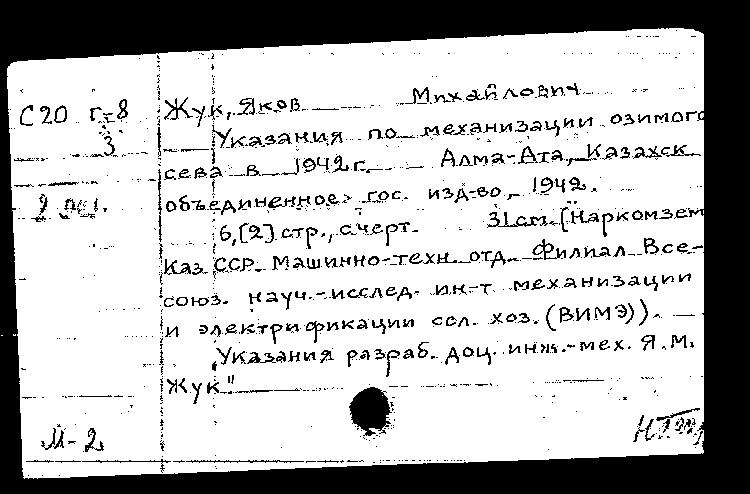 С20 г-8
3
Жук, Яков Михайлович
Указания по механизации озимого
сева в 1942 г. Алма-Ата, Казахск
объединенное гос. изд-во, 1942.
6,[2] стр., с черт. 31 см. (Наркомзем
Каз ССР. Машинно-техн. отд. Филиал Все-
союз. науч.-исслед. ин-т механизации
и электрификации сел. хоз. (ВИМЭ)).
"Указания разраб. доц. инж.-мех. Я.М.
Жук"
М-2